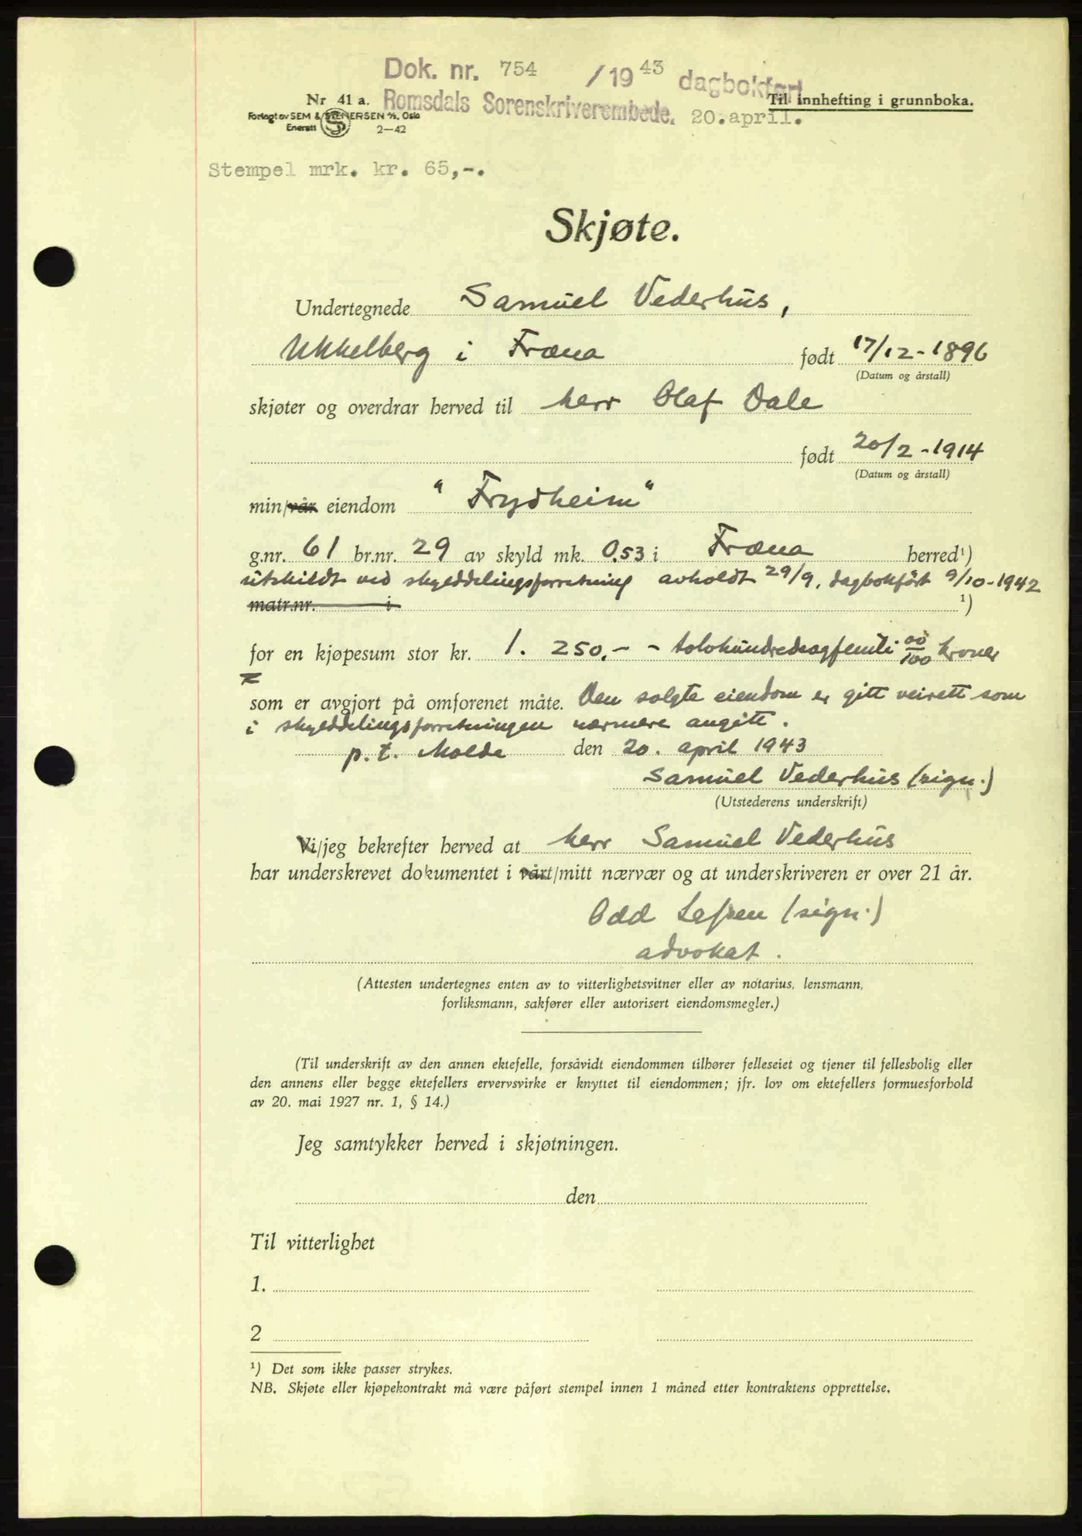 Dok. nr. 754 /1943 dagbokført
Nr 41 a. Romsdals Sorenskriverembede. 20.april. Til innhefting i grunnboka.
Forlagt av SEM & STENERSEN A/S, Oslo
Enerett 2-42
Stempel mrk. kr. 65,-.
Skjøte.
Undertegnede Samuel Vederhus,
Ukkelberg i Fræna født 17/12-1896
(Datum og årstall)
skjøter og overdrar herved til herr Olaf Dale
født 20/2-1914
(Datum og årstall)
min/vår eiendom "Frydheim"
g.nr. 61 br.nr. 29 av skyld mk. 0.53 i Fræna herred¹)
utskildt ved skylddelingsforretning avholdt 29/9, dagbokført 9/10-1942
matr.nr. i ¹)
for en kjøpesum stor kr. 1.250.- - tolvhundredeogfemti 00/100 kroner
som er avgjort på omforenet måte. Den solgte eiendom er gitt veirett som
i skylddelingsforretningen nærmere angitt.
p.t. Molde den 20. april 1943
Samuel Vederhus (sign.)
(Utstederens underskrift)
Vi/jeg bekrefter herved at herr Samuel Vederhus
har underskrevet dokumentet i vårt/mitt nærvær og at underskriveren er over 21 år.
Odd (sign.)
advokat.
(Attesten undertegnes enten av to vitterlighetsvitner eller av notarius, lensmann,
forliksmann, sakfører eller autorisert eiendomsmegler.)
(Til underskrift av den annen ektefelle, forsåvidt eiendommen tilhører felleseiet og tjener til fellesbolig eller
den annens eller begge ektefellers ervervsvirke er knyttet til eiendommen; jfr. lov om ektefellers formuesforhold
av 20. mai 1927 nr. 1, § 14.)
Jeg samtykker herved i skjøtningen.
den
Til vitterlighet
1.
2
¹) Det som ikke passer strykes.
NB. Skjøte eller kjøpekontrakt må være påført stempel innen 1 måned etter kontraktens opprettelse.